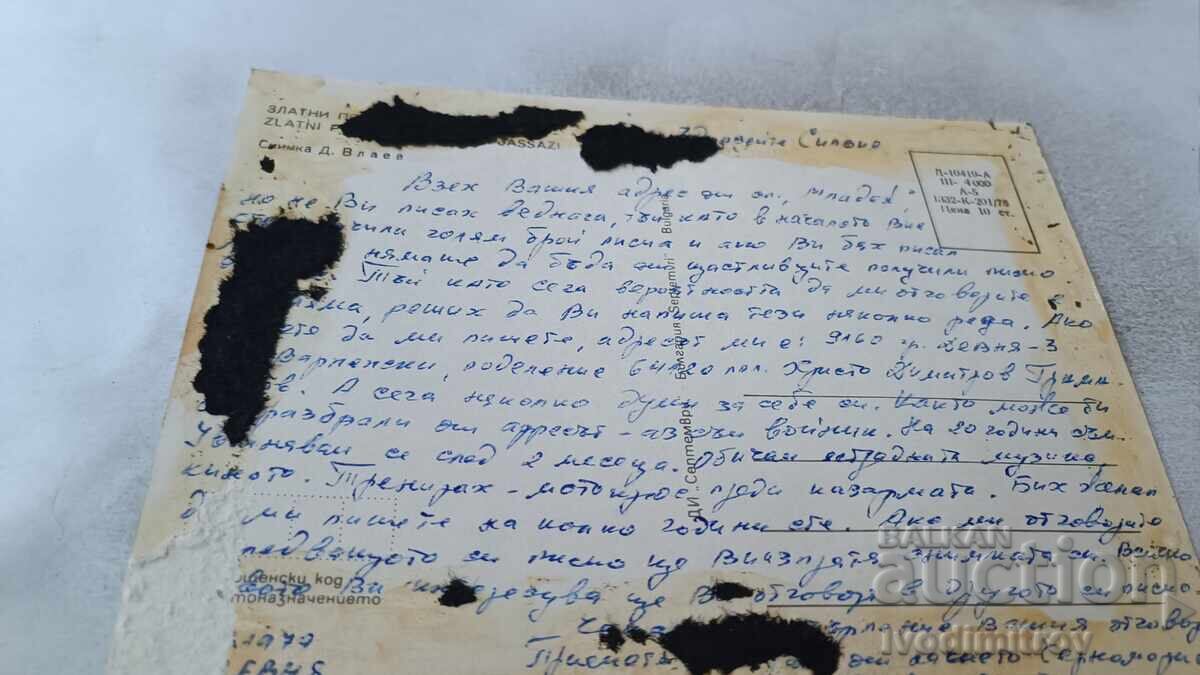 ЗЛАТНИ П
ZLATNI
JASSAZI
Снимка Д. Влаев
Здравейте Силвие
П-10419-А
III- 4000
А-5
1332-К-201/78
Цена 10 ст.
Взех Вашия адрес от сп. "Младеж",
но не Ви писах веднага, тъй като в началото Вие
чили голям брой писма и ако Ви бях писал
нямаше да бъда от щастливците получили писмо
Тъй като сега вероятността да ми отговорите е
реших да Ви напиша тези няколко реда. Ако
да ми пишете, адресът ми е: 9160 гр. Девня-3
Варненски, поделение пол. Христо Димитров
А сега няколко думи за себе си. Както може би
разбрали от адресът - аз съм войник. На 20 години съм.
Уволнявам се след 2 месеца. Обичам естрадната музика
киното. Тренирах - мотокрос преди казармата. Бих желал
ми пишете на колко години сте. Ако ми отговорите
следващото си писмо ще Ви изпратя снимката си. Всичко
Ви интересува ще Ви отговоря в другото си писмо
Вашия отговор
от
ДИ „Септември" България „Septemvri" Bulgaria
щенски код
тоназначението
BALKAN
auction
ivodimitrov